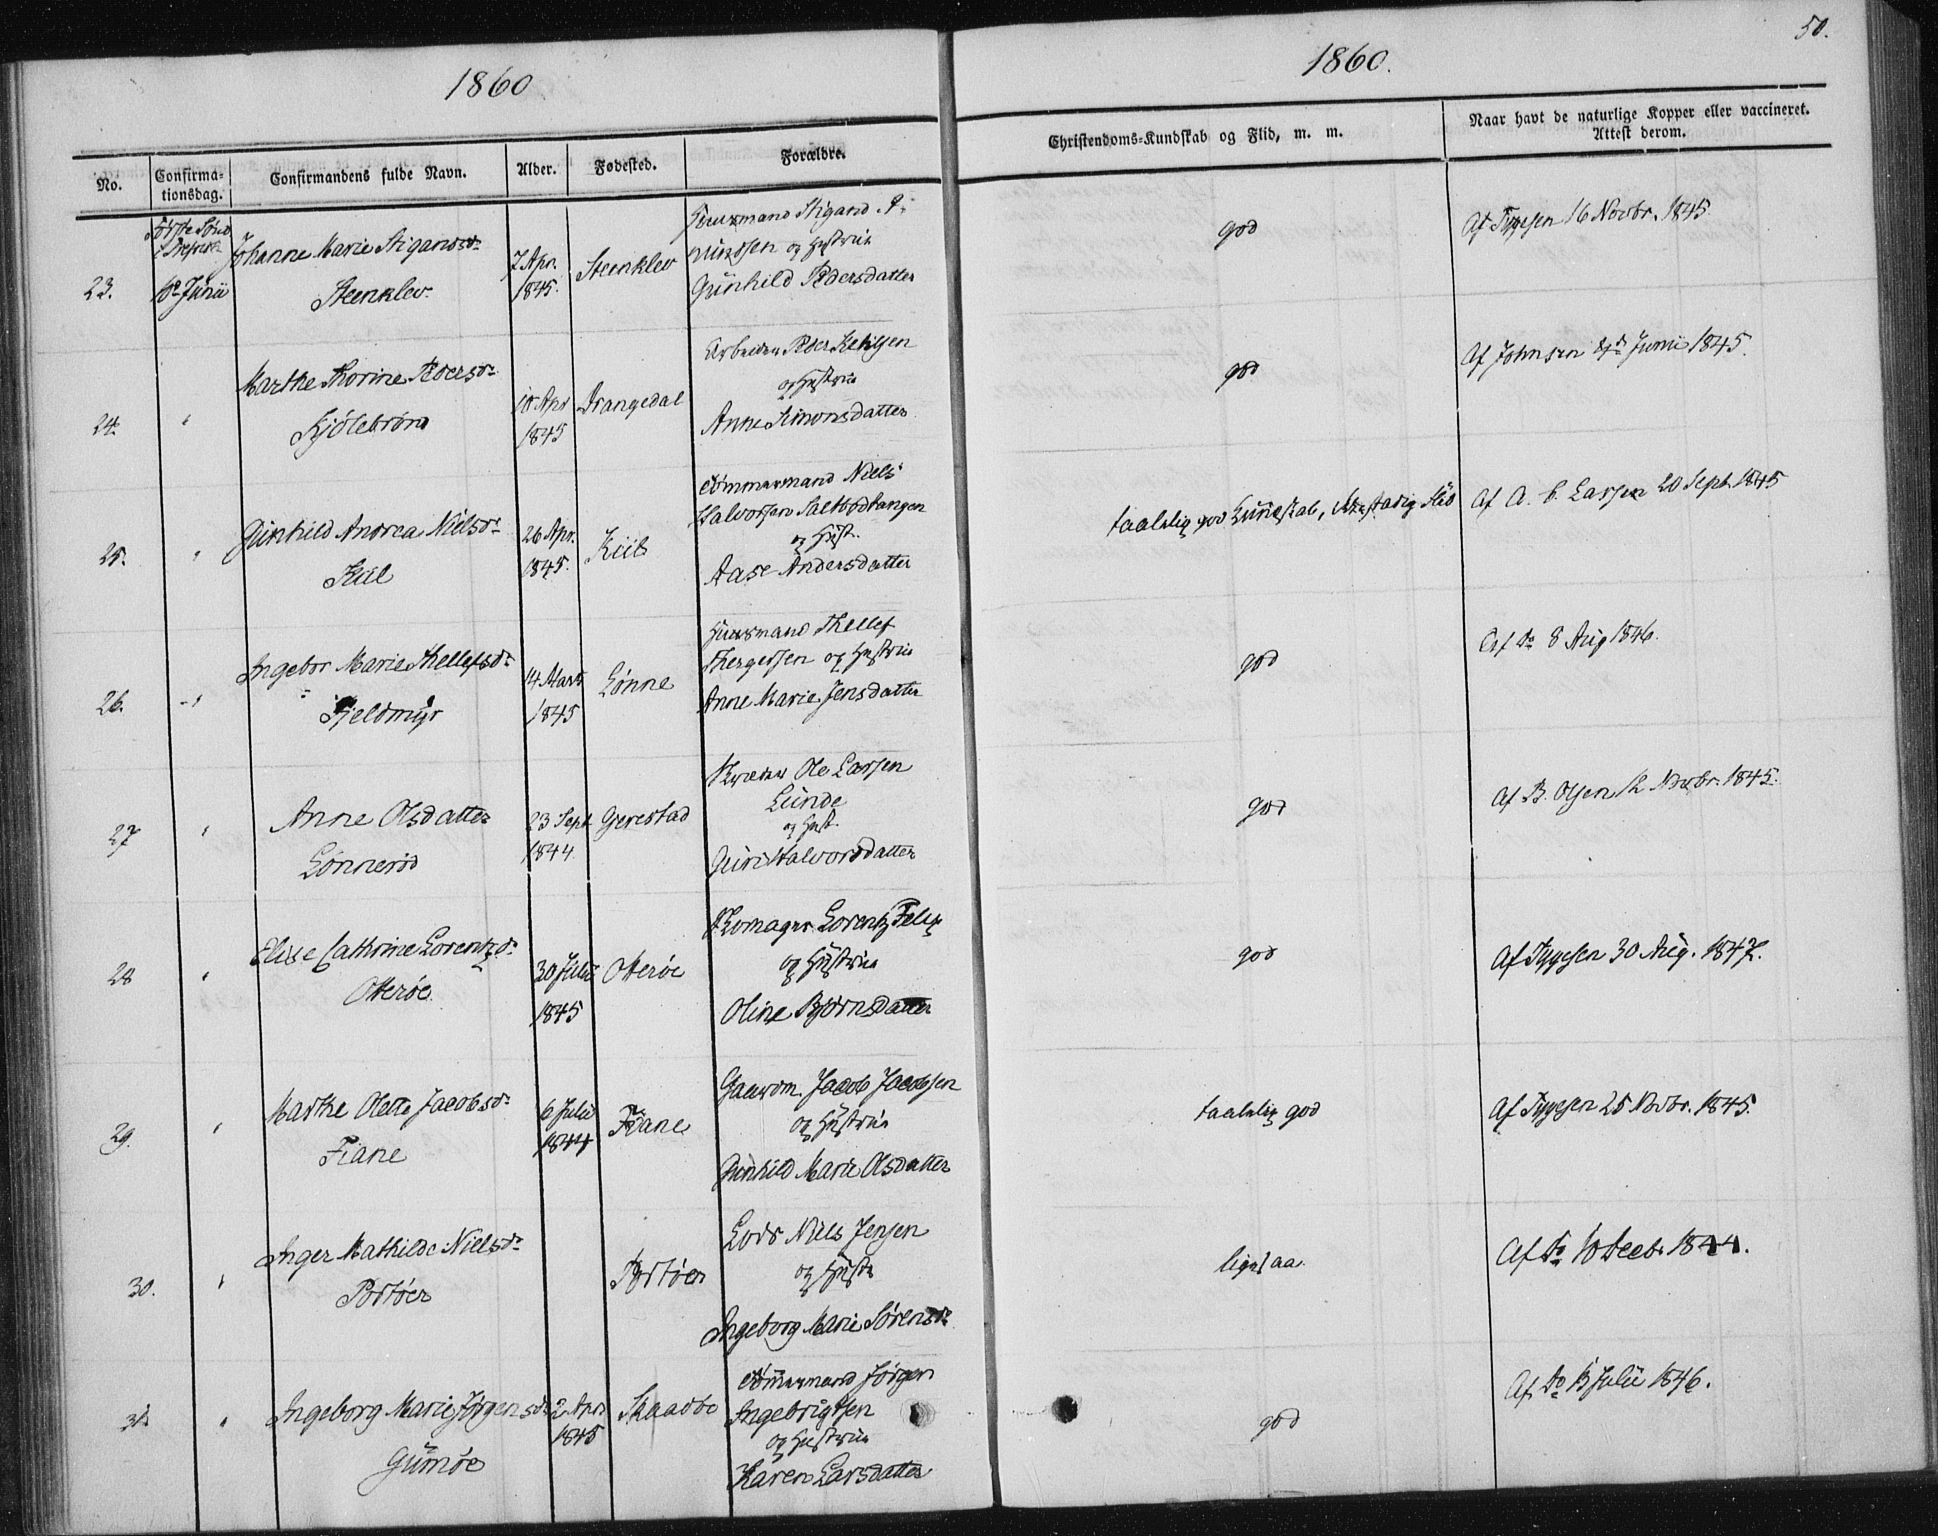 1860
No.
Confirma-
tionsdag.
Confirmandens fulde Navn.
Alder.
Fødested.
Forældre.
23.
10de Junii
Johanne Marie Stigandsdr
Steenklev.
7 Apr.
1845.
Steenklev
Huusmand Stigand
og Hustrue
Gunhild Pedersdatter
24.
"
Marthe Thorine Pedersdr
Kjølebrønd
10 Apr
1845
Drangedal
Arbeider Peder Ketilsen
og Hustrue
Anne Simonsdatter
25.
"
Gunhild Andrea Nielsdr
Kiil
26 Apr.
1845.
Kiil
Tømmermand Niels
Halvorsen Saltbodtangen
og Hust.
Aase Andersdatter
26.
"
Ingebor Marie Thellefsdr
Fjeldmyr
14 Marts
1845
Lønne
Huusmand Thellef
Thergersen og Hustrue
Anne Marie Jensdatter
27
"
Anne Olsdatter
Lønnerød
23 Sept
1844
Gjerestad
Skræder Ole Larsen
Lunde
og Hust.
Guri Halvorsdatter
28
"
Elise Cathrine Lorentzdr
Otterøe.
30 Julii
1845
Otterøe
Skomager Lorentz Felix
og Hustrue
Oline Bjørnsdatter
29.
"
Marthe Olette Jacobsdr
Fiane
6 Julii
1844
Fiane
Gaardm. Jacob Jacobsen
og Hustrue
Gunhild Marie Olsdatter
30.
"
Inger Mathilde Nielsdr
Portøer
Portøer
Lods Niels Jensen
og Hustr
Ingeborg Marie Sørensdr
31.
"
Ingeborg Marie Jørgensdr
Gumøe
2 Apr.
1845
Skaadbo
Tømmermand Jørgen
Ingebrigtsen
og Hustrue
Karen Larsdatter
50.
1860.
Christendoms-Kundskab og Flid, m. m.
Naar havt de naturlige Kopper eller vaccineret.
Attest derom.
god
Af Tygesen 16 Novbr. 1845.
god
Af Johnsen Junii 1845.
taalelig god Kundskab, Flid
Af A. C. Larsen 20 Sept. 1845
god
Af do 8 Aug 1846.
god
Af B. Olsen 12 Novbr. 1845.
god
Af Tygesen 30 Aug. 1847.
taalelig god
Af Tygesen 25 Novbr. 1845.
ligesaa.
Af do 10 Decbr 1844.
god
Af do 13 Julii 1846.